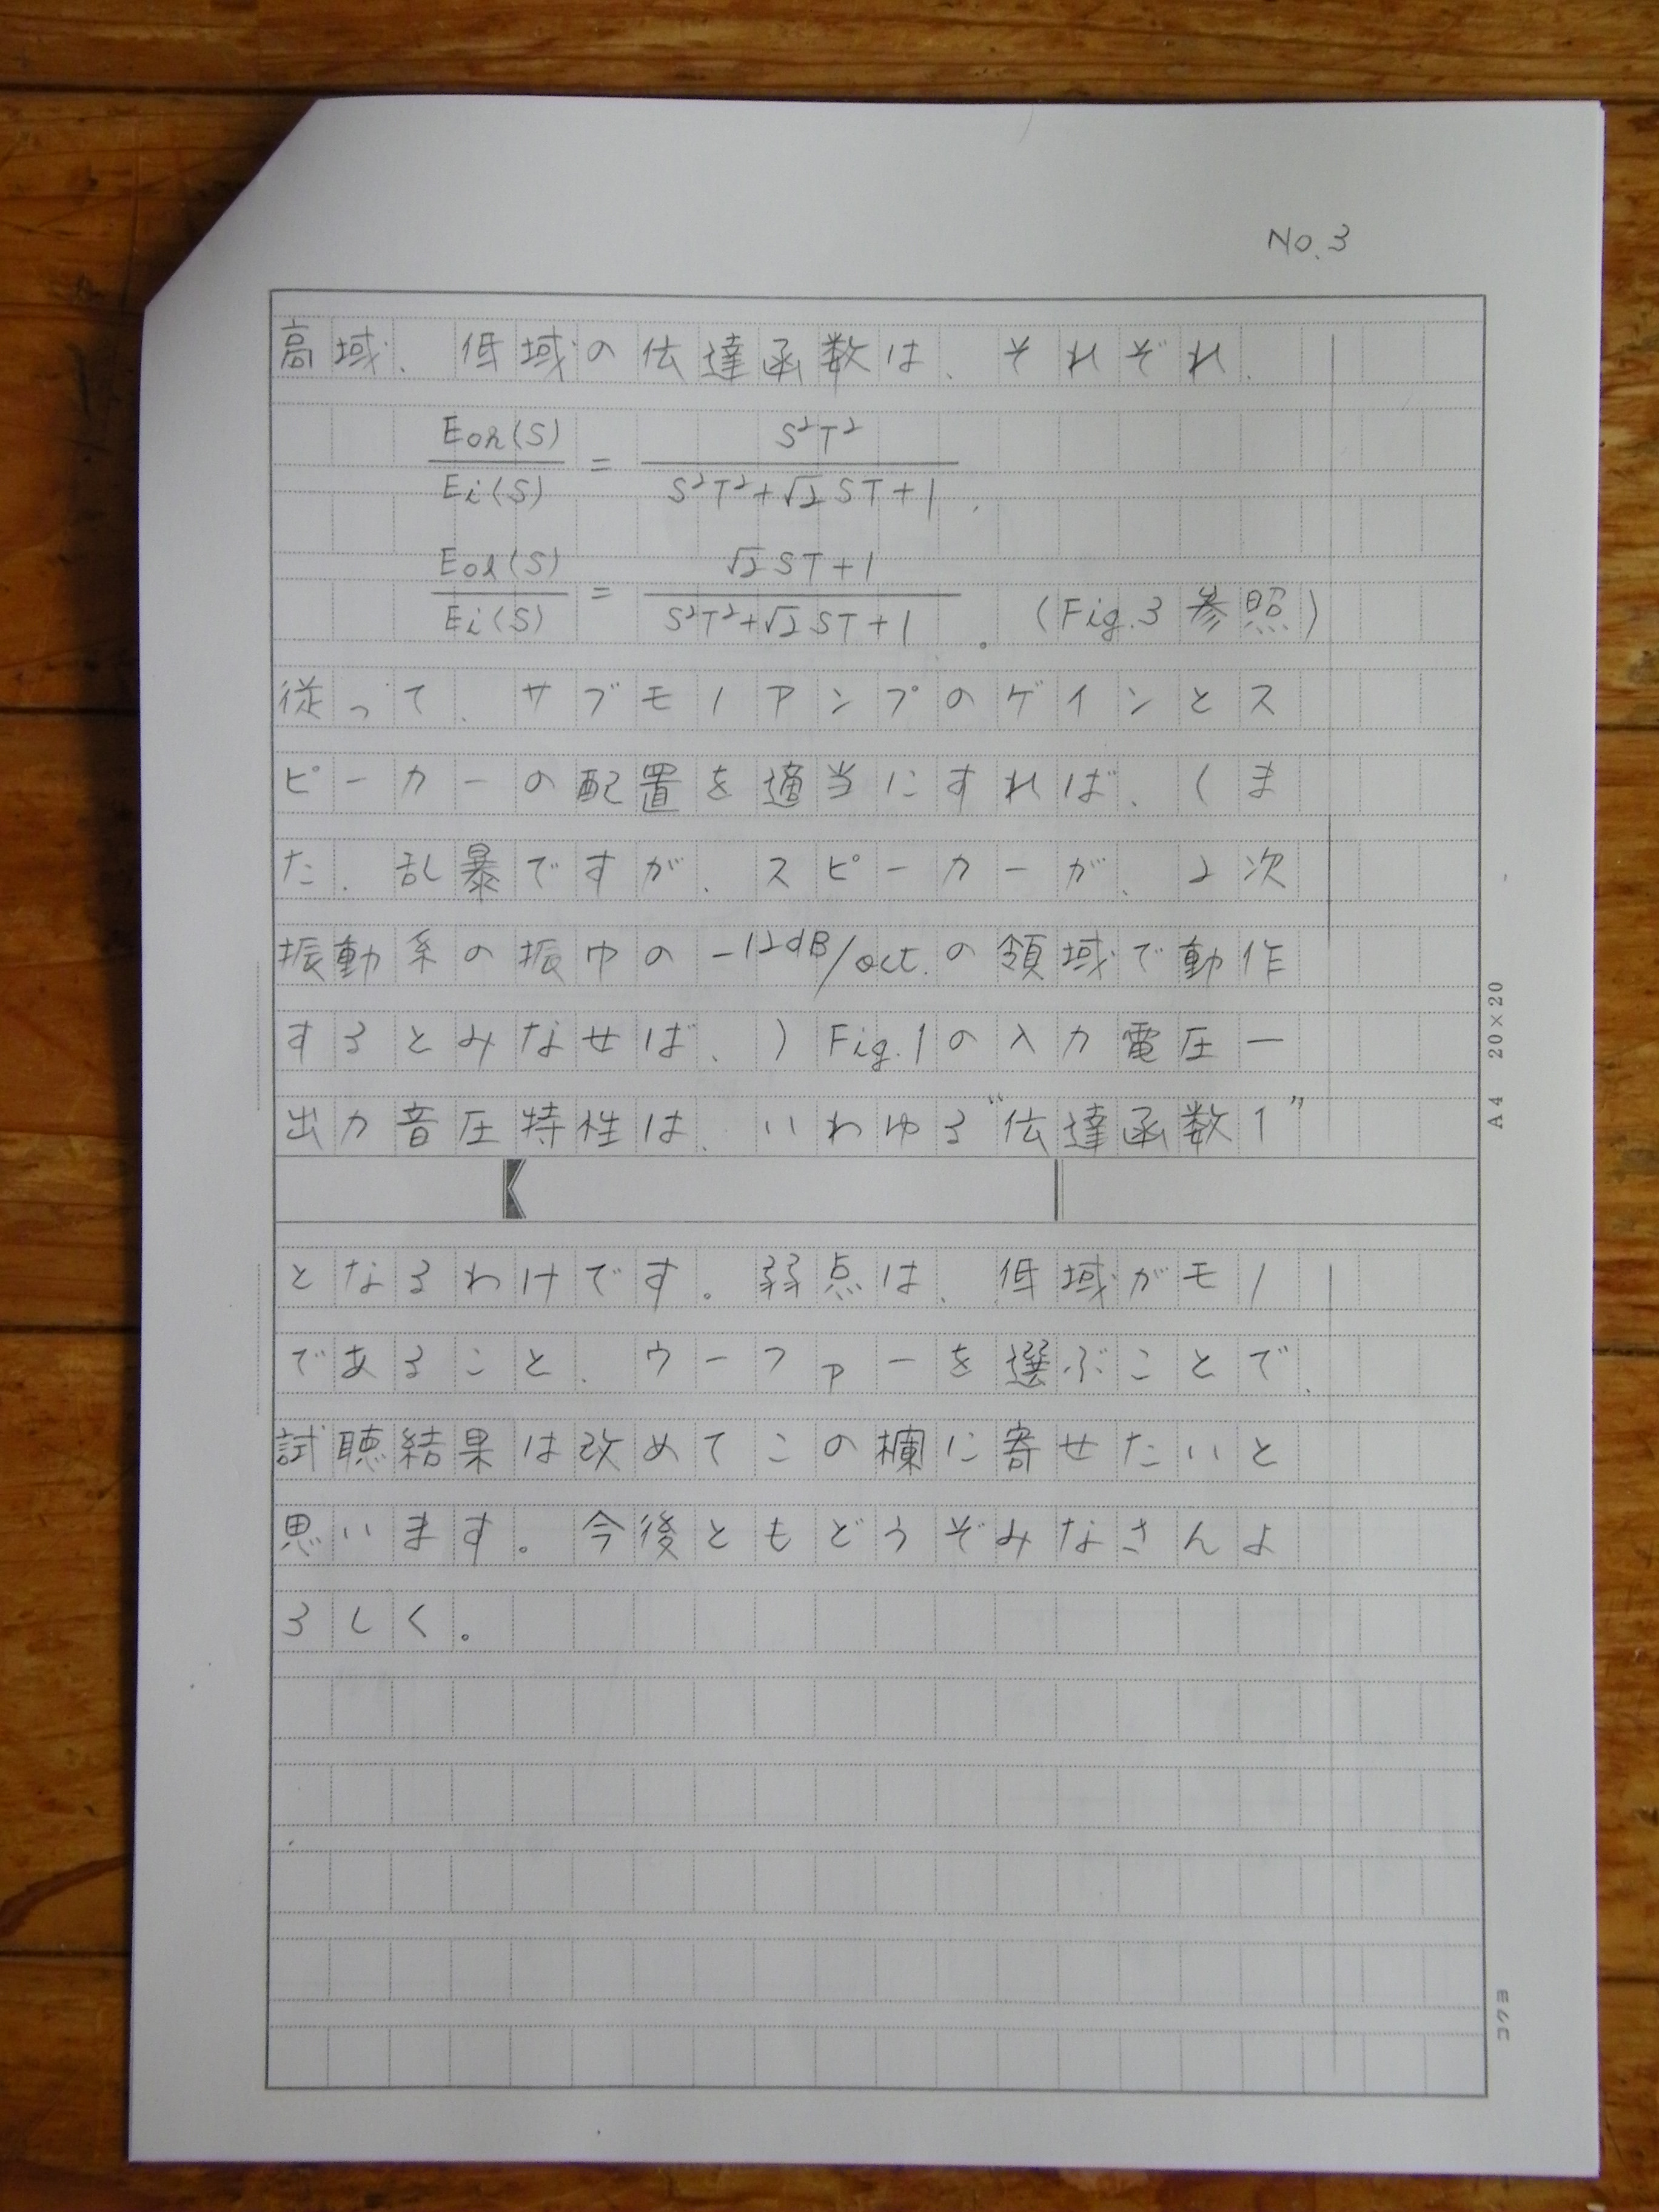 No.3
高域、低域の伝達函数は、それぞれ、
Eoh(S)/Ei(S) = S²T²/(S²T²+√2ST+1)、
Eol(S)/Ei(S) = (√2ST+1)/(S²T²+√2ST+1)。(Fig.3参照)
従って、サブモノアンプのゲインとス
ピーカーの配置を適当にすれば、(ま
た、乱暴ですが、スピーカーが、2次
振動系の振巾の-12dB/oct.の領域で動作
するとみなせば、)Fig.1の入力電圧ー
出力音圧特性は、いわゆる"伝達函数1"
となるわけです。弱点は、低域がモノ
であること、ウーファーを選ぶことで、
試聴結果は改めてこの欄に寄せたいと
思います。今後ともどうぞみなさんよ
ろしく。
A4 20×20
コクヨ